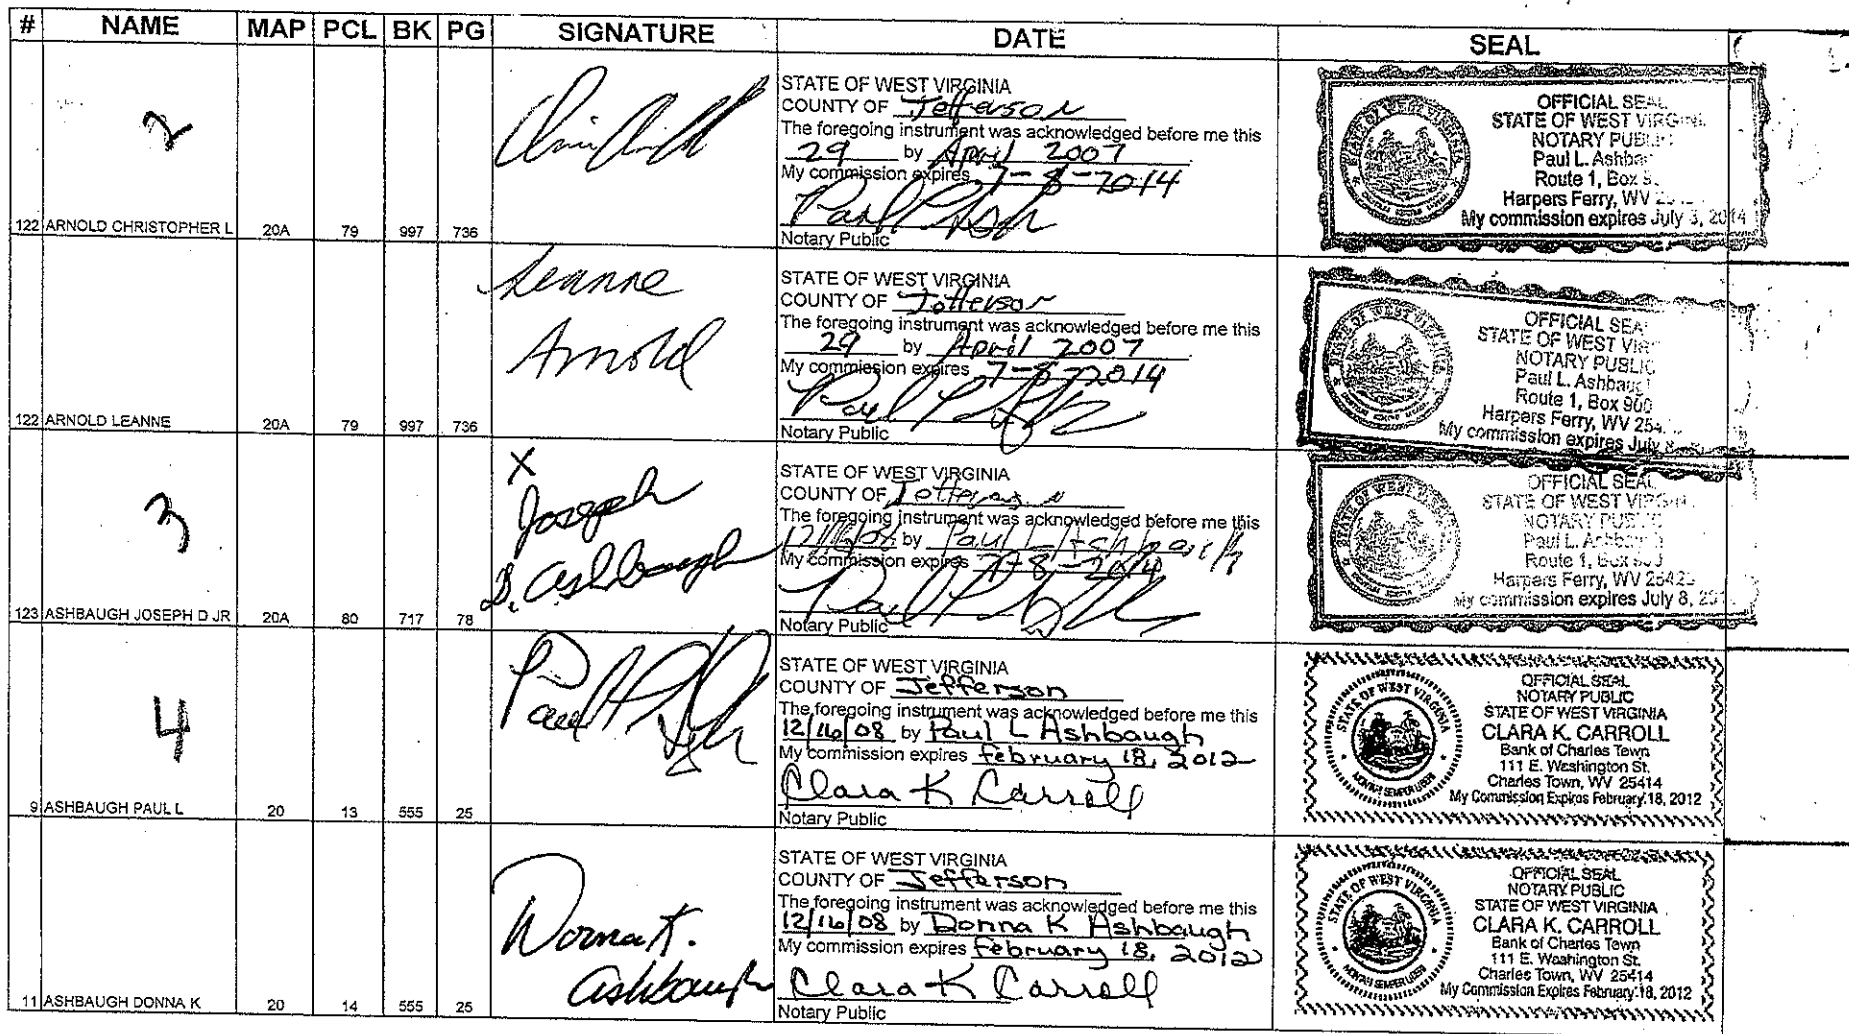 # NAME MAP PCL BK PG SIGNATURE DATE SEAL
2
122 ARNOLD CHRISTOPHER L 20A 79 997 736
STATE OF WEST VIRGINIA
COUNTY OF Jefferson
The foregoing instrument was acknowledged before me this
29 by April 2007
My commission expires 7-8-2014
Notary Public
OFFICIAL SEAL
STATE OF WEST VIRGINIA
NOTARY PUBLIC
Paul L.
Route 1, Box
Harpers Ferry, WV
My commission expires July 2014
122 ARNOLD LEANNE 20A 79 997 736
Leanne
Arnold
STATE OF WEST VIRGINIA
COUNTY OF Jefferson
The foregoing instrument was acknowledged before me this
29 by April 2007
My commission expires 7-8-2014
Notary Public
OFFICIAL SEAL
STATE OF WEST
NOTARY PUBLIC
Paul L. Ashbaugh
Route 1, Box 900
Harpers Ferry, WV
My commission expires July 8
3
123 ASHBAUGH JOSEPH D JR 20A 80 717 78
X
Joseph
D. Ashbaugh
STATE OF WEST VIRGINIA
COUNTY OF Jefferson
The foregoing instrument was acknowledged before me this
by Paul L Ashbaugh
My commission expires 7-8-2014
Notary Public
OFFICIAL SEAL
STATE OF WEST
NOTARY PUBLIC
Paul L.
Route 1, Box
Harpers Ferry, WV
My commission expires July 8,
4
9 ASHBAUGH PAUL L 20 13 555 25
STATE OF WEST VIRGINIA
COUNTY OF Jefferson
The foregoing instrument was acknowledged before me this
12/16/08 by Paul L Ashbaugh
My commission expires February 18, 2012
Clara K Carroll
Notary Public
OFFICIAL SEAL
NOTARY PUBLIC
STATE OF WEST VIRGINIA
CLARA K. CARROLL
Bank of Charles Town
111 E. Washington St.
Charles Town, WV 25414
My Commission Expires February 18, 2012
11 ASHBAUGH DONNA K 20 14 555 25
Donna K.
Ashbaugh
STATE OF WEST VIRGINIA
COUNTY OF Jefferson
The foregoing instrument was acknowledged before me this
12/16/08 by Donna K Ashbaugh
My commission expires February 18, 2012
Clara K Carroll
Notary Public
OFFICIAL SEAL
NOTARY PUBLIC
STATE OF WEST VIRGINIA
CLARA K. CARROLL
Bank of Charles Town
111 E. Washington St.
Charles Town, WV 25414
My Commission Expires February 18, 2012